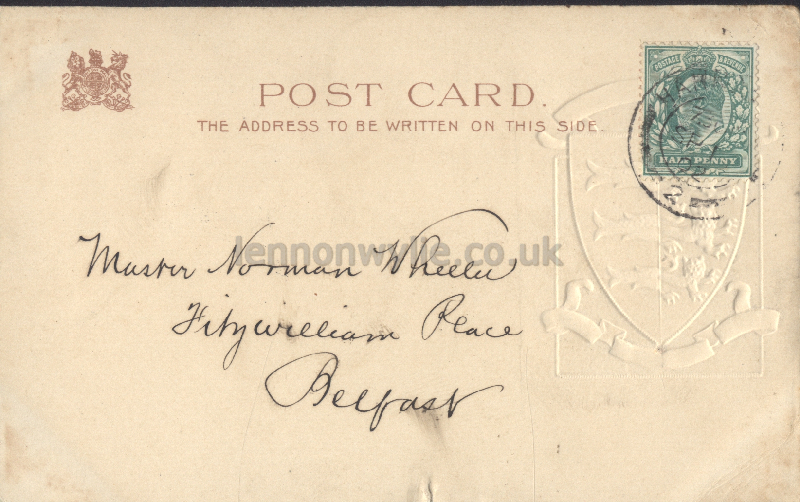 POST CARD.
THE ADDRESS TO BE WRITTEN ON THIS SIDE.
POSTAGE & REVENUE
HALF PENNY
lennonwylie.co.uk
Master Norman Wheeler
Fitzwilliam Place
Belfast